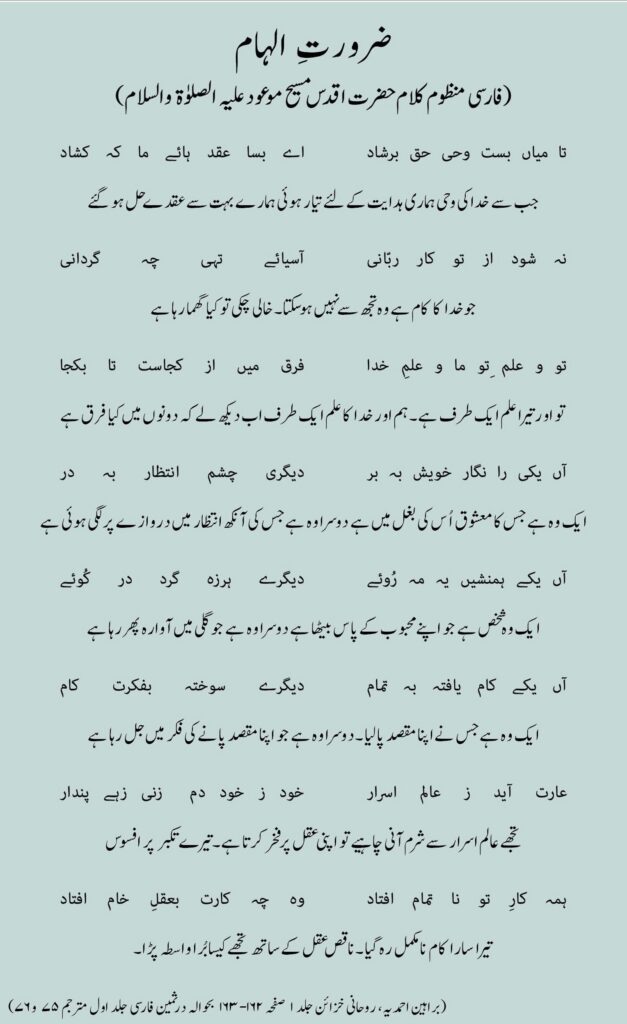 ضرورتِ الہام
(فارسی منظوم کلام حضرت اقدس مسیح موعود علیہ الصلوٰۃ والسلام)
تا میاں بست وحی حق برشاد اے بسا عقد ہائے ما کہ کشاد
جب سے خدا کی وحی ہماری ہدایت کے لئے تیار ہوئی ہمارے بہت سے عقدے حل ہو گئے
نہ شود از تو کار ربّانی آسیائے تہی چہ گردانی
جو خدا کا کام ہے وہ تجھ سے نہیں ہوسکتا۔ خالی چکی تو کیا گھما رہا ہے
تو و علم ِتو ما و علمِ خدا فرق میں از کجاست تا بکجا
تو اور تیرا علم ایک طرف ہے۔ ہم اور خدا کا علم ایک طرف اب دیکھ لے کہ دونوں میں کیا فرق ہے
آں یکی را نگار خویش بہ بر دیگری چشم انتظار بہ در
ایک وہ ہے جس کا معشوق اُس کی بغل میں ہے دوسرا وہ ہے جس کی آنکھ انتظار میں دروازے پر لگی ہوئی ہے
آں یکے ہمنشیں یہ مہ رُوئے دیگرے ہرزہ گرد در کُوئے
ایک وہ شخص ہے جو اپنے محبوب کے پاس بیٹھا ہے دوسرا وہ ہے جو گلی میں آوارہ پھر رہا ہے
آں یکے کام یافتہ بہ تمام دیگرے سوختہ بفکرت کام
ایک وہ ہے جس نے اپنا مقصد پالیا۔ دوسرا وہ ہے جو اپنا مقصد پانے کی فکر میں جل رہا ہے
عارت آید ز عالم اسرار خود ز خود دم زنی زہے پندار
تجھے عالم اسرار سے شرم آنی چاہیے تو اپنی عقل پر فخر کرتا ہے۔ تیرے تکبر پر افسوس
ہمہ کارِ تو نا تمام افتاد وہ چہ کارت بعقلِ خام افتاد
تیرا سارا کام نامکمل رہ گیا۔ ناقص عقل کے ساتھ تجھے کیسا بُرا واسطہ پڑا۔
(براہین احمدیہ، روحانی خزائن جلد ۱ صفحہ ۱۶۲-۱۶۳ بحوالہ درثمین فارسی جلد اول مترجم ۷۵ و ۷۶)